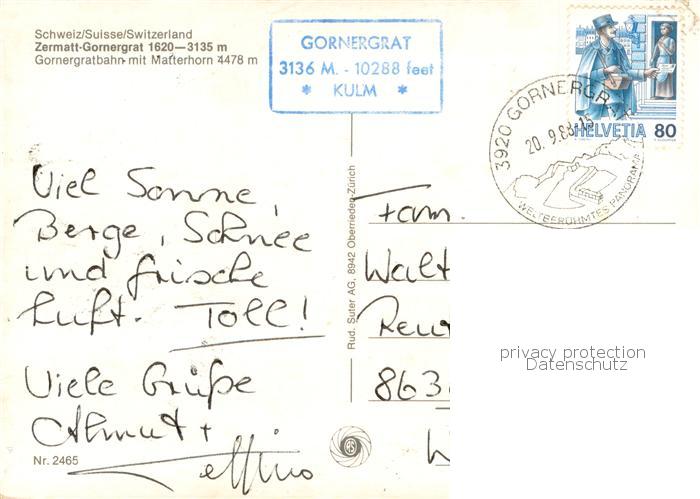 Schweiz/Suisse/Switzerland
Zermatt-Gornergrat 1620—3135 m
Gornergratbahn mit Matterhorn 4478 m
GORNERGRAT
3136 M. - 10288 feet
* KULM *
HELVETIA 80
3920 GORNERGRAT
20. 9.88-15
WELTBERÜHMTES PANORAMA
Viel Sonne,
Berge, Schnee
und frische
Luft. Toll!
Viele Grüße
Almut +
Rud. Suter AG, 8942 Oberrieden-Zürich
Fam.
Walt
Reut
863
privacy protection
Datenschutz
Nr. 2465